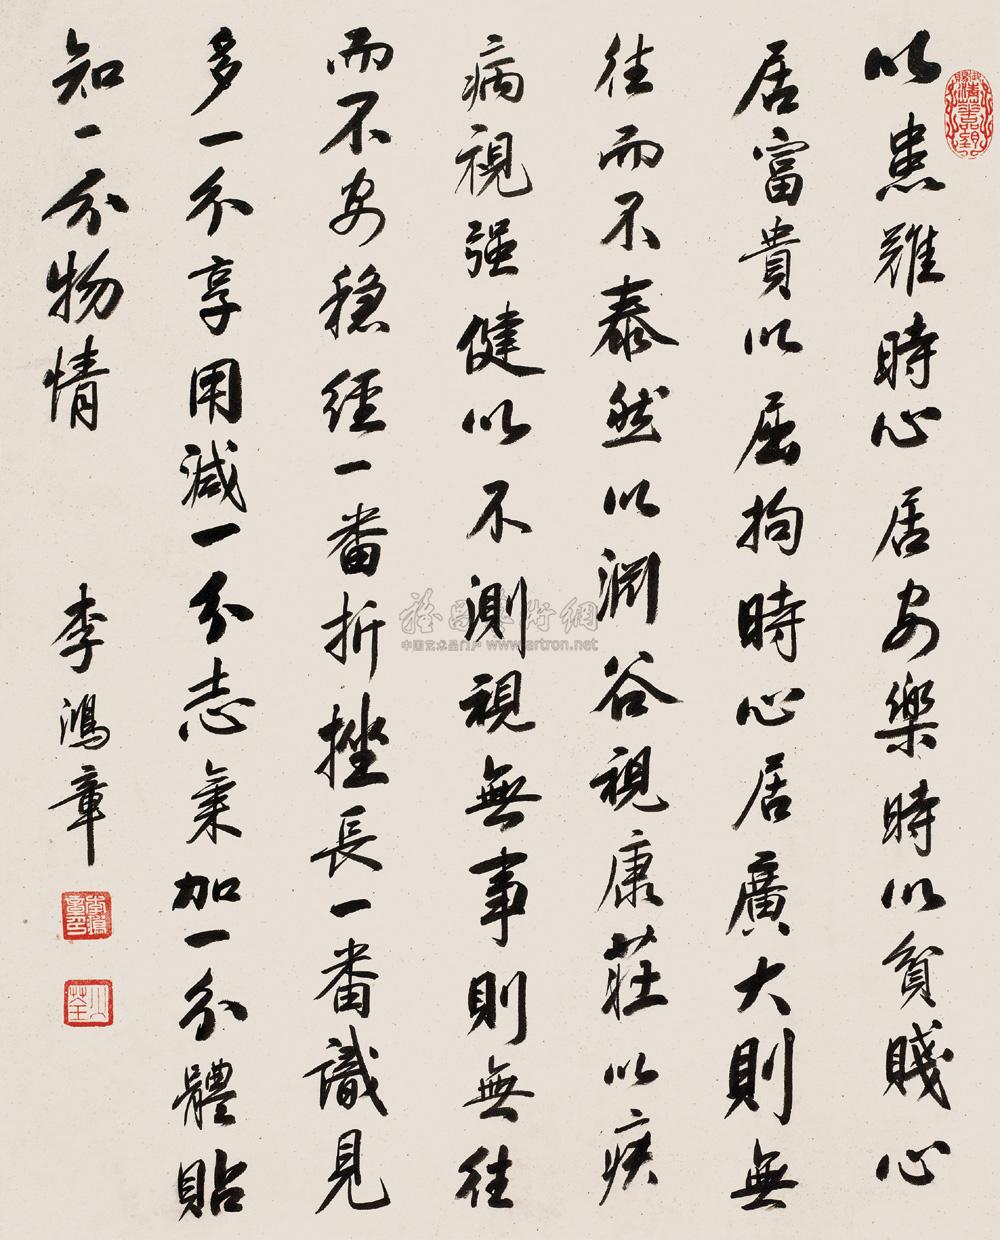 以患難時心居安樂時以貧賤心
居富貴以屈拘時心居廣大則無
往而不泰然以淵谷視康莊以疾
病視强健以不測視無事則無往
而不安穩經一番折挫長一番識見
多一分享用減一分志氣加一分體貼
知一分物情
李鴻章
李鴻章印
少荃
雅昌艺术網
中国艺术品门户 www.artron.net